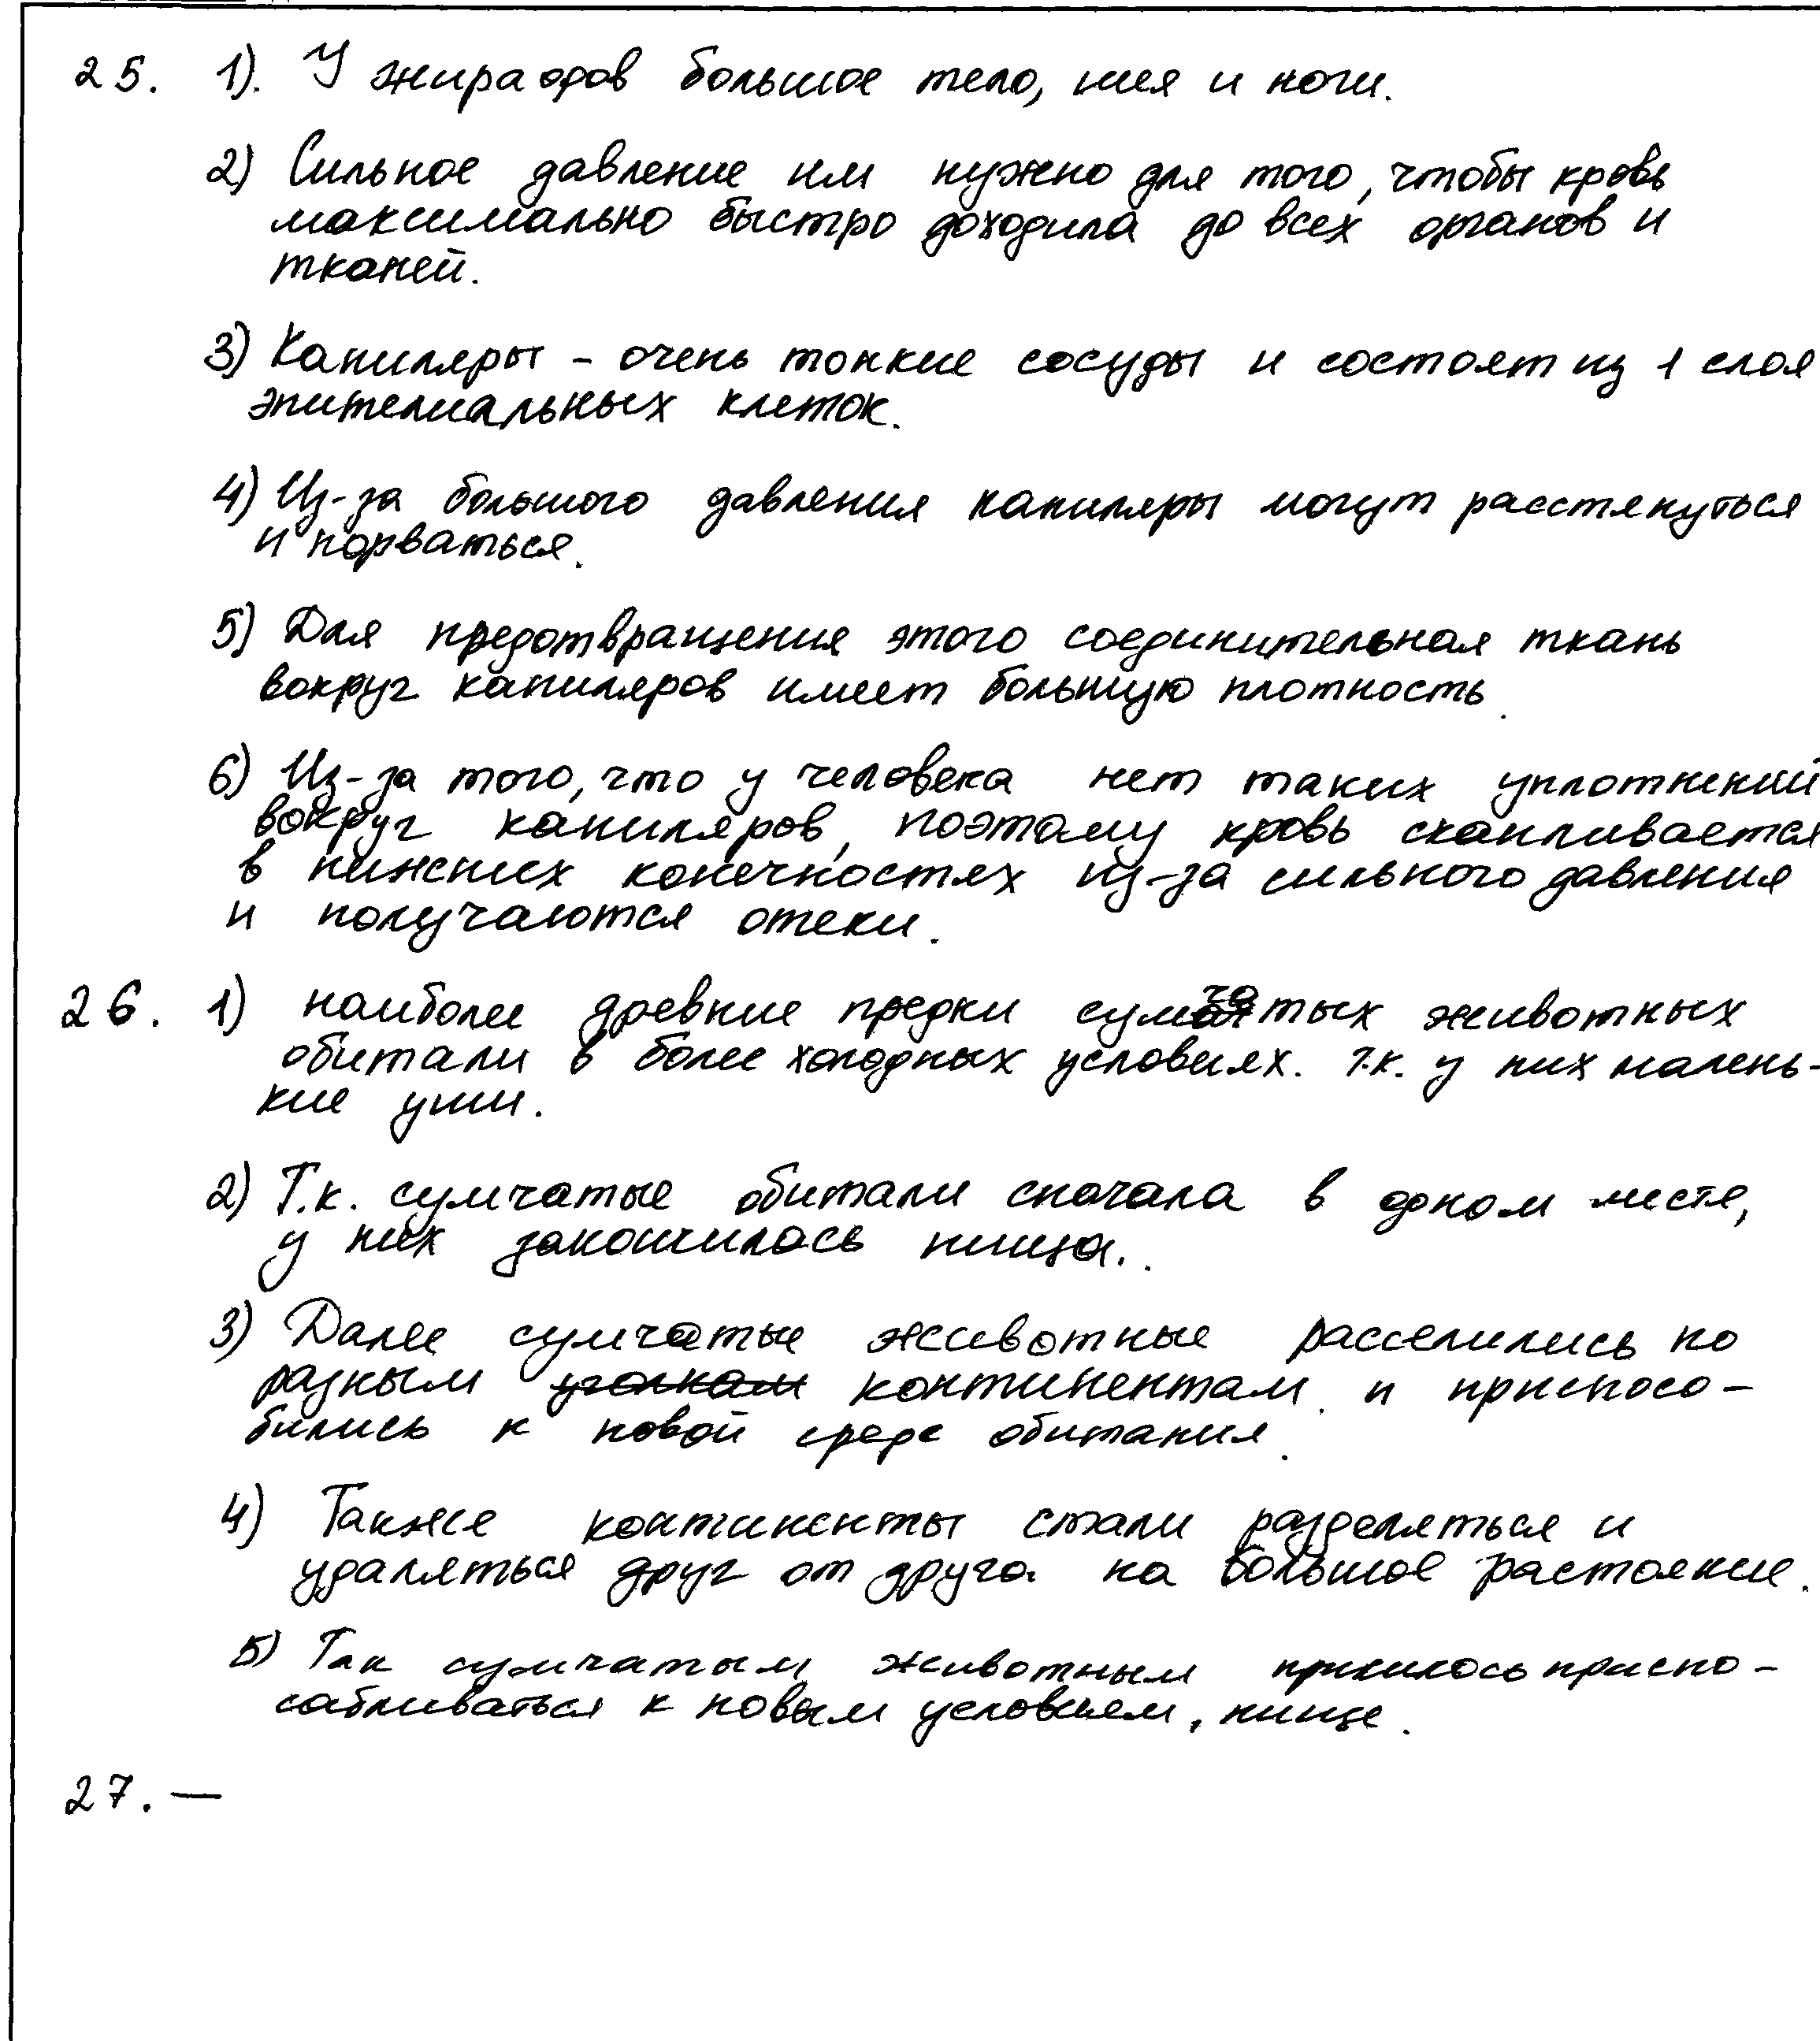 25. 1). У жирафов большое тело, шея и ноги.
2) Сильное давление им нужно для того, чтобы кровь
максимально быстро доходила до всех органов и
тканей.
3) Капилляры - очень тонкие сосуды и состоят из 1 слоя
эпителиальных клеток.
4) Из-за большого давления капилляры могут расстянуться
и порваться.
5) Для предотвращения этого соединительная ткань
вокруг капиляров имеет большую плотность.
6) Из-за того, что у человека нет таких уплотнений
вокруг капиляров, поэтому кровь скапливается
в нижних конечностях из-за сильного давления
и получаются отеки.
26. 1) наиболее древние предки сумчатых животных
обитали в более холодных условиях. т.к. у них малень-
кие уши.
2) Т.к. сумчатые обитали сначала в одном месте,
у них закончилась пища.
3) Далее сумчатые животные расселились по
разным уголкам континентам и приспосо-
бились к новой среде обитания.
4) Также континенты стали разделяться и
удаляться друг от друга на большое растояние.
5) Так сумчатым животным пришлось приспо-
сабливаться к новым условием, пище.
27. —